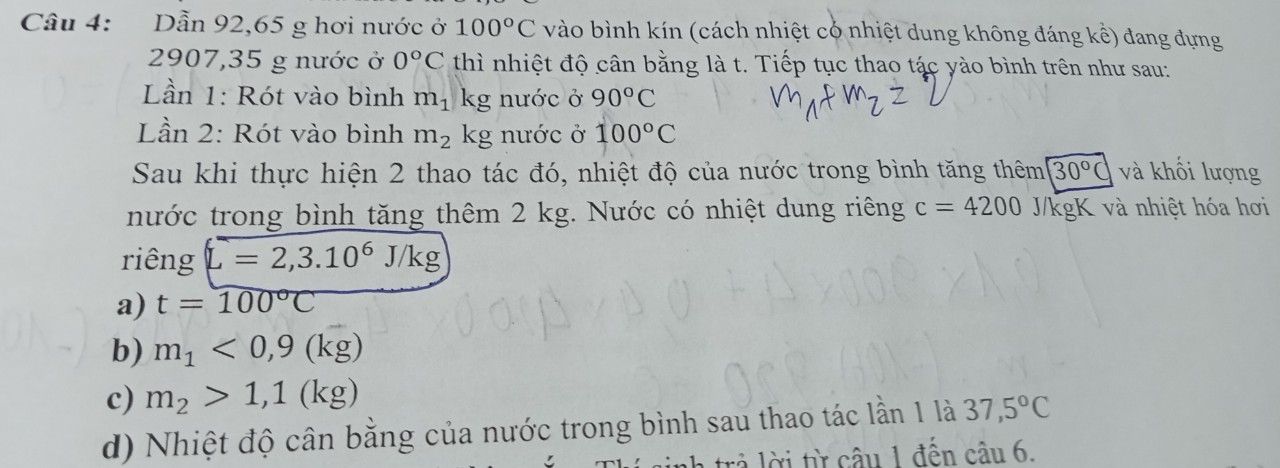 Câu 4: Dẫn 92,65 g hơi nước ở 100°C vào bình kín (cách nhiệt có nhiệt dung không đáng kể) đang đựng
2907,35 g nước ở 0°C thì nhiệt độ cân bằng là t. Tiếp tục thao tác vào bình trên như sau:
Lần 1: Rót vào bình m₁ kg nước ở 90°C
m₁ + m₂ = 2
Lần 2: Rót vào bình m₂ kg nước ở 100°C
Sau khi thực hiện 2 thao tác đó, nhiệt độ của nước trong bình tăng thêm 30°C và khối lượng
nước trong bình tăng thêm 2 kg. Nước có nhiệt dung riêng c = 4200 J/kgK và nhiệt hóa hơi
riêng L = 2,3.10⁶ J/kg
a) t = 100°C
b) m₁ < 0,9 (kg)
c) m₂ > 1,1 (kg)
d) Nhiệt độ cân bằng của nước trong bình sau thao tác lần 1 là 37,5°C
trả lời từ câu 1 đến câu 6.